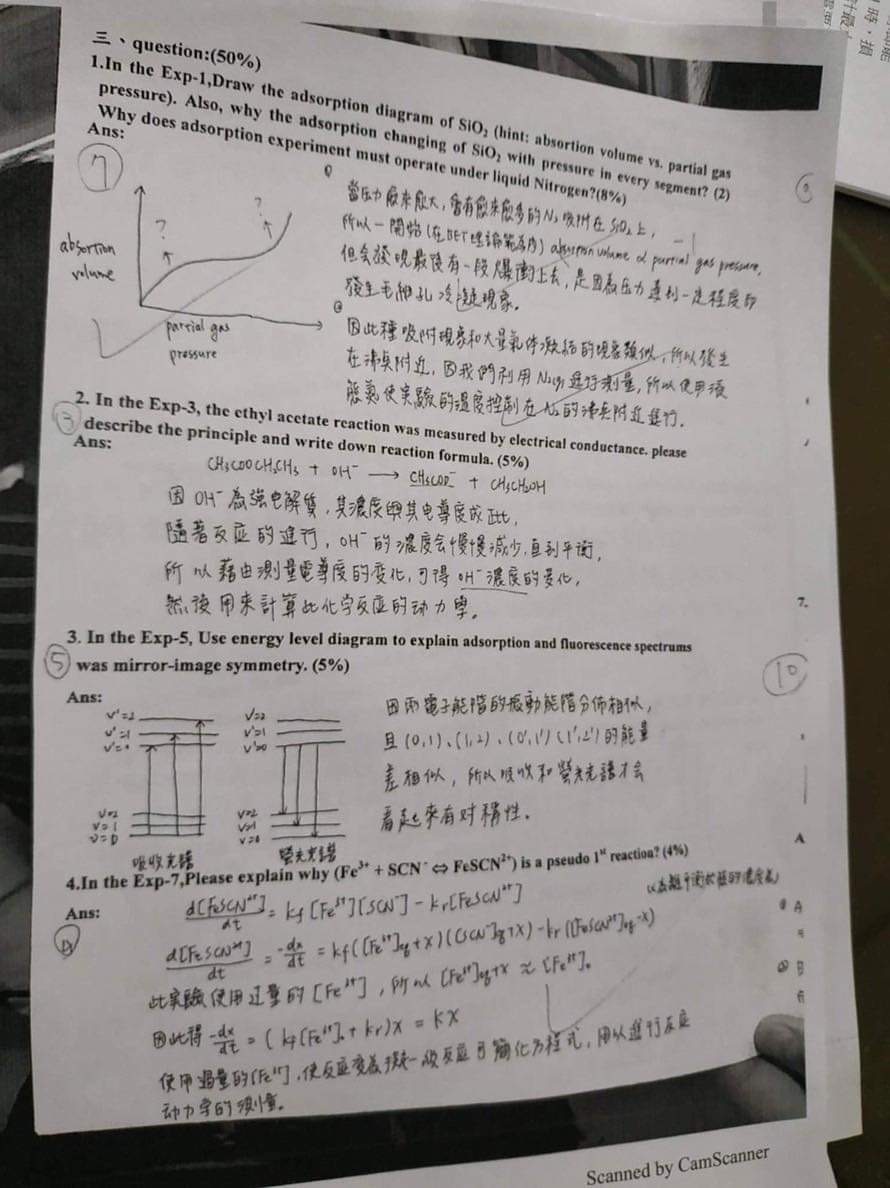 三、question:(50%)
1.In the Exp-1,Draw the adsorption diagram of SiO₂ (hint: absortion volume vs. partial gas
pressure). Also, why the adsorption changing of SiO₂ with pressure in every segment? (2)
Why does adsorption experiment must operate under liquid Nitrogen?(8%)
Ans:
7
?
?
absortion
volume
partial gas
pressure
當壓力愈來愈大,會有愈來愈多的N₂吸附在SiO₂上,
所以一開始(在BET理論範為內) absortion volume ∝ partial gas pressure,
但会發現最後有一段爆衝上去,是因為压力達到一定程度即
發生毛細孔冷凝現象。
因此種吸附現象和大量氣体凝結的現象類似,所以發生
在沸点附近,因我們利用N₂(g)進行測量,所以使用液
態氮使實驗的溫度控制在N₂的沸点附近進行.
2. In the Exp-3, the ethyl acetate reaction was measured by electrical conductance. please
describe the principle and write down reaction formula. (5%)
3
Ans:
CH₃COOCH₂CH₃ + OH⁻ → CH₃COO⁻ + CH₃CH₂OH
因OH⁻為強电解質,其濃度與其电導度成正比,
隨著反应的進行,OH⁻的濃度会慢慢減少,直到平衡,
所以藉由測量電導度的变化,可得OH⁻濃度的变化,
然後用來計算此化学反应的动力學。
7.
3. In the Exp-5, Use energy level diagram to explain adsorption and fluorescence spectrums
was mirror-image symmetry. (5%)
5
10
Ans:
v'=2
v'=1
v'=0
v=2
v=1
v=0
吸收光譜
v=2
v'=1
v'=0
v=2
v=1
v=0
螢光光譜
因兩電子能階的振動能階分佈相似,
且(0,1)、(1,2)、(0',1')(1',2')的能量
差相似,所以吸收和螢光光譜才会
看起來有对稱性.
A
4.In the Exp-7,Please explain why (Fe³⁺ + SCN⁻ ⇔ FeSCN²⁺) is a pseudo 1ˢᵗ reaction? (4%)
Ans:
4
d[FeSCN²⁺]/dt = kf [Fe³⁺][SCN⁻] - kr[FeSCN²⁺]
d[FeSCN²⁺]/dt = -dx/dt = kf([Fe³⁺]eq+x)([SCN⁻]eq+x) - kr([FeSCN²⁺]eq-x)
此實驗使用过量的[Fe³⁺],所以[Fe³⁺]eq+x ≈ [Fe³⁺]₀
因此得 -dx/dt = (kf[Fe³⁺]₀+kr)x = kx
使用過量的[Fe³⁺],使反应变為擬一級反应可簡化方程式,用以進行反应
动力学的測量。
A
B
Scanned by CamScanner